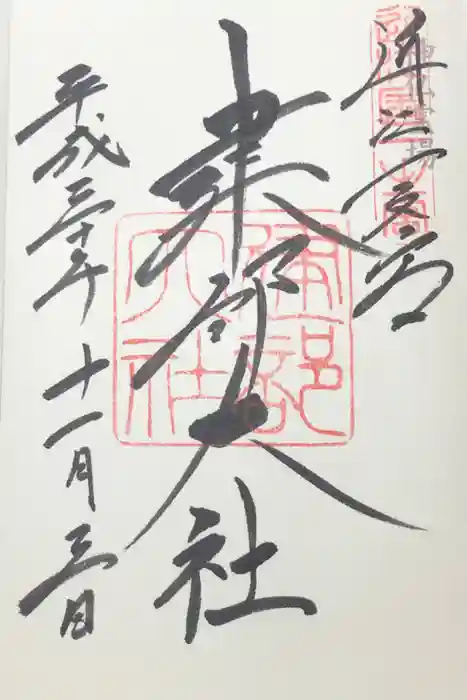 近江一之宮
神仏霊場
建部大社
建部大社
平成三十年十一月三日